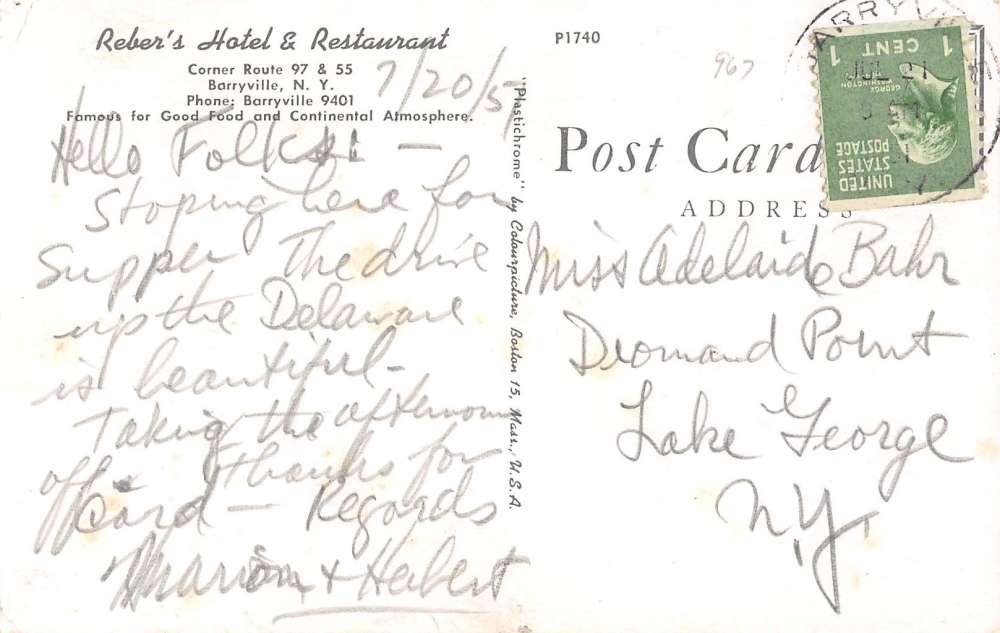 Reber's Hotel & Restaurant
Corner Route 97 & 55
Barryville, N. Y.
Phone: Barryville 9401
Famous for Good Food and Continental Atmosphere.
7/20/5
Hello Folks —
Stoping here for
Supper The drive
up the Delaware
is beautiful -
Taking the afternoon
off - thanks for
Card — Regards
Marion + Herbert
"Plastichrome" by Colourpicture, Boston 15, Mass., U.S.A.
P1740
967
Post Card
ADDRESS
Miss Adelaide Bahr
Diomand Point
Lake George
N.Y.
BARRYVI
JUL 21
1 CENT 1
GEORGE WASHINGTON
UNITED STATES POSTAGE